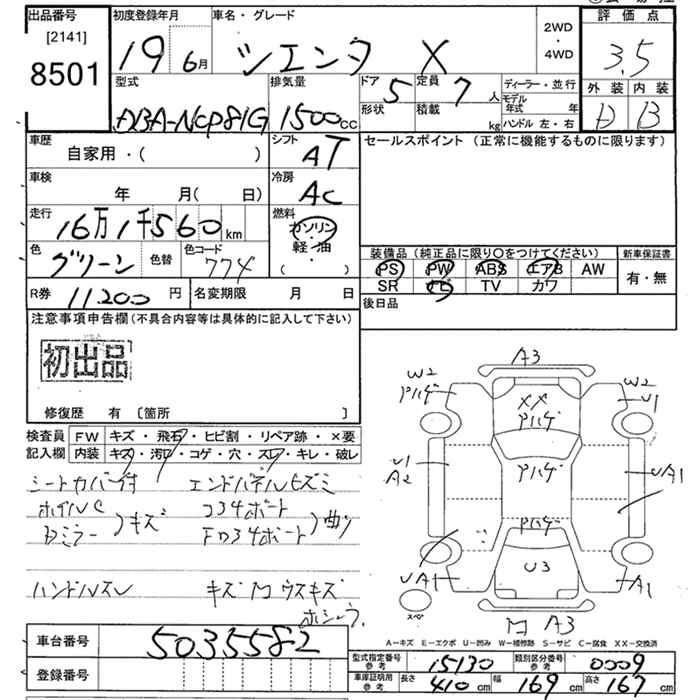 出品番号
[2141]
8501
初度登録年月
19 6月
車名・グレード
シエンタ X
2WD
・
4WD
評価点
3.5
外装 内装
D B
型式
DBA-NCP81G
排気量
1500cc
ドア 5
形状
定員 7人
積載 kg
ディーラー・並行
モデル年式 年
ハンドル 左・右
車歴
自家用・( )
シフト
AT
セールスポイント (正常に機能するものに限ります)
車検
年 月(日)
冷房
AC
走行
16万1千560km
燃料
ガソリン
軽・油
・( )
色
グリーン
色替
色コード
774
装備品(純正品に限り○をつけてください)
新車保証書
PS PW ABS エアB AW
SR ナビ TV カワ
有・無
R券
11200円
名変期限 月 日
後日品
注意事項申告欄(不具合内容等は具体的に記入して下さい)
初出品
修復歴 有 [箇所 ]
検査員
記入欄
FW キズ・飛石・ヒビ割・リペア跡・×要
内装 キズ・汚レ・コゲ・穴・スレ・キレ・破レ
シートカバー付 エンドパネルヒズミ
キズ
曲り
ハンドルスレ
A3
W2
Pハゲ
W2
U1
XX
Pハゲ
U1
A2
Pハゲ
UA1
Pハゲ
U3
UA1
A1
スペア
A3
A-キズ E-エクボ U-凹み W-補修跡 S-サビ C-腐食 XX-交換済
車台番号
5035582
登録番号
型式指定番号
参考
15130
類別区分番号
参考
0009
車庫証明用
参考
長さ 410cm 幅 169cm 高さ 167cm